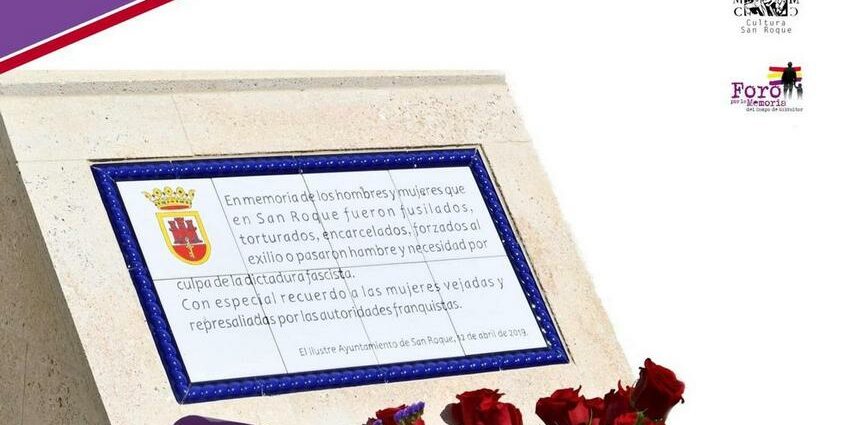 Cultura
San Roque
Foro
por la Memoria
del Campo de Gibraltar
En memoria de los hombres y mujeres que
en San Roque fueron fusilados,
torturados, encarcelados, forzados al
exilio o pasaron hambre y necesidad por
culpa de la dictadura fascista.
Con especial recuerdo a las mujeres vejadas y
represaliadas por las autoridades franquistas.
El Ilustre Ayuntamiento de San Roque, 12 de abril de 2019.